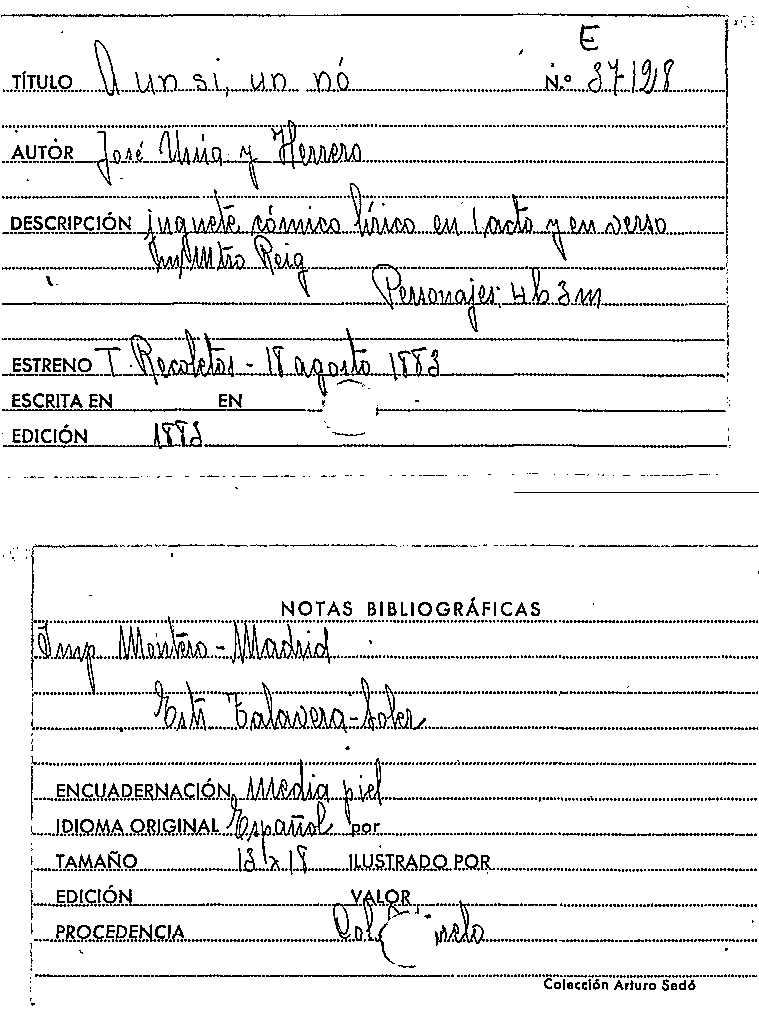 E
TÍTULO A un si, un nó N.º 37-198
AUTOR José Usúa y Herrero
DESCRIPCIÓN juguete cómico lírico en 1 acto y en verso
Mtro Reig
Personajes: 4h 3m
ESTRENO T. Recoletos - 18 agosto 1883
ESCRITA EN EN
EDICIÓN 1883
NOTAS BIBLIOGRÁFICAS
Imp Montero - Madrid
Estr Talavera-Soler
ENCUADERNACIÓN Media piel
IDIOMA ORIGINAL Español por
TAMAÑO 13 x 18 ILUSTRADO POR
EDICIÓN VALOR
PROCEDENCIA
Colección Arturo Sedó